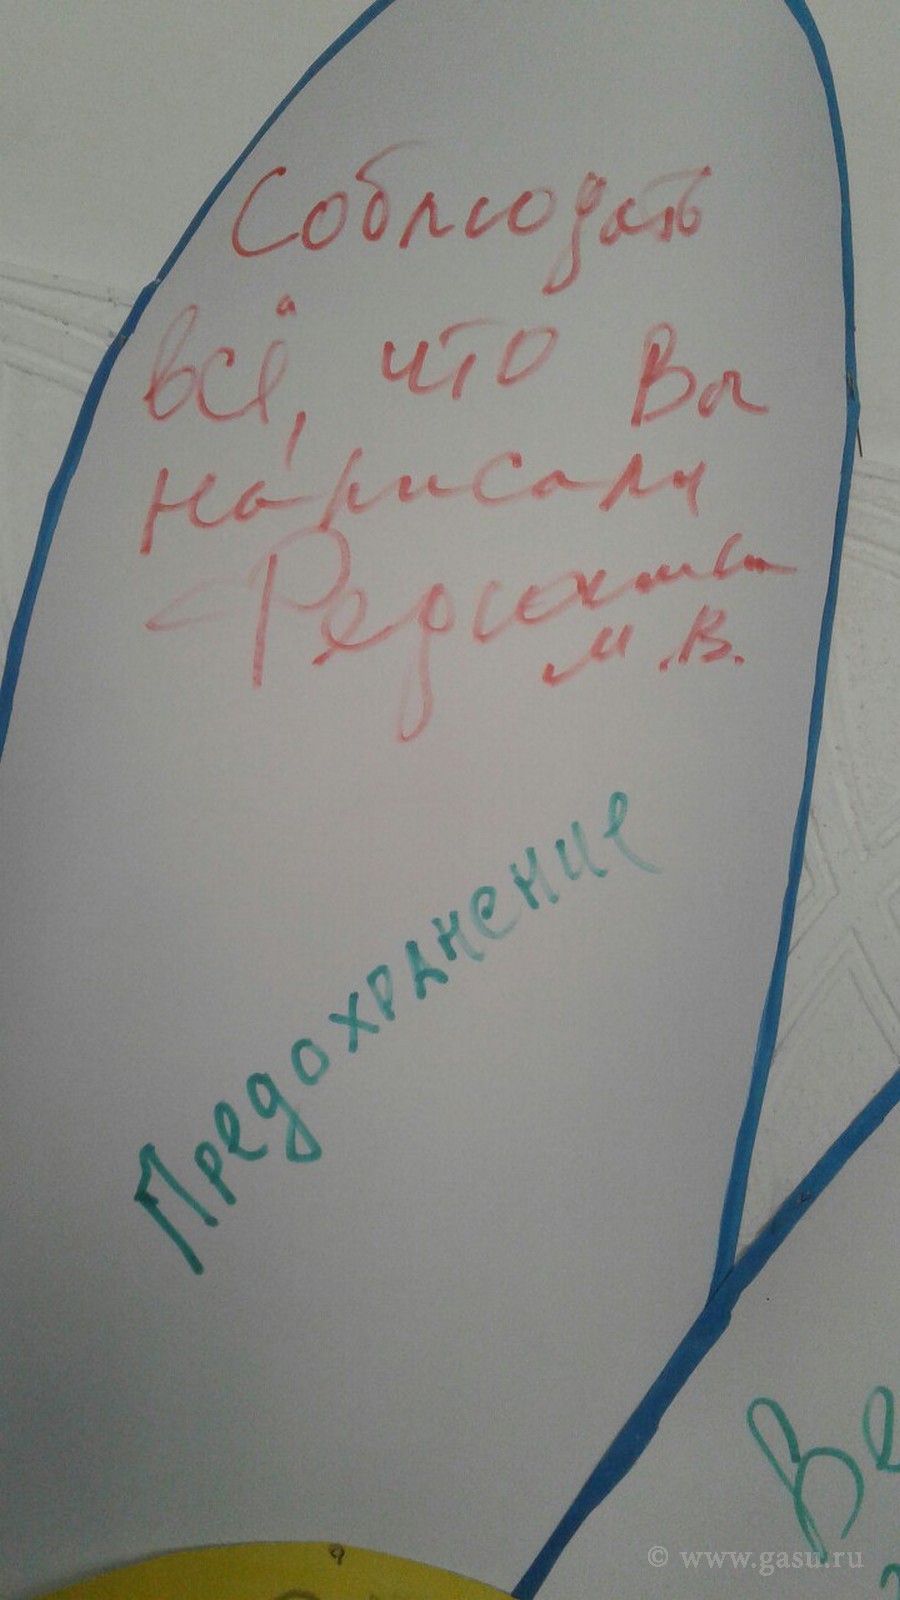 Соблюдать
всё, что Вы
написали
М.В.
Предохранение
Ве
© www.gasu.ru